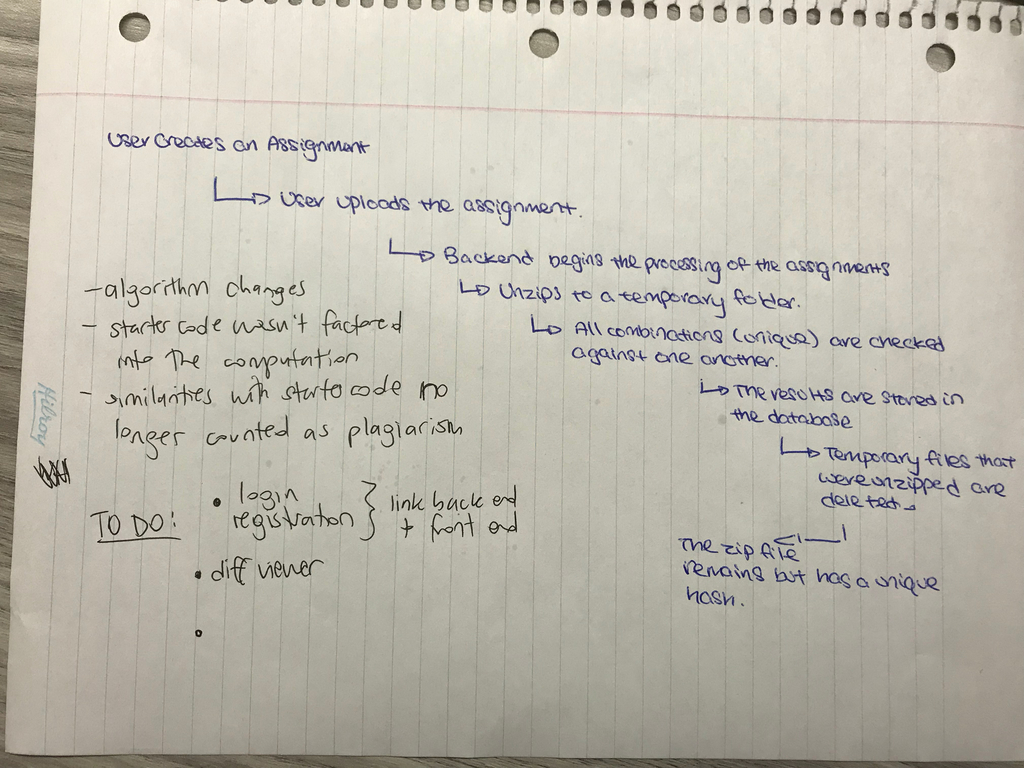 User Creates an Assignment
↳ User uploads the assignment.
↳ Backend begins the processing of the assignments
↳ Unzips to a temporary folder.
↳ All combinations (unique) are checked
against one another.
↳ The results are stored in
the database
↳ Temporary files that
were unzipped are
deleted.
The zip file
remains but has a unique
hash.
- algorithm changes
- starter code wasn't factored
into the computation
- similarities with starter code no
longer counted as plagiarism
Hilroy
TO DO:
• login
registration } link back end
+ front end
• diff viewer
•